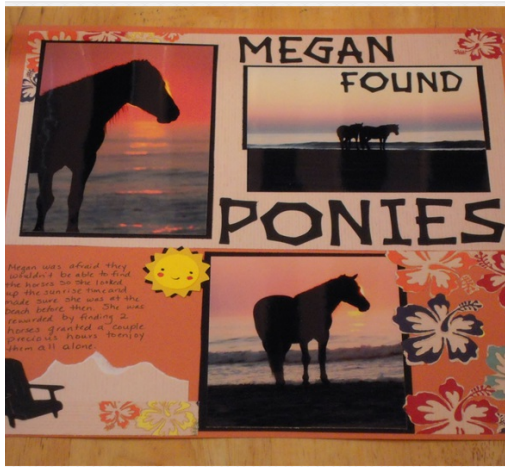 MEGAN
FOUND
PONIES
Megan was afraid they
wouldn't be able to find
the horses so she looked
up the sunrise time and
made sure she was at the
beach before then. She was
rewarded by finding 2
horses granted a couple
precious hours to enjoy
them all alone.